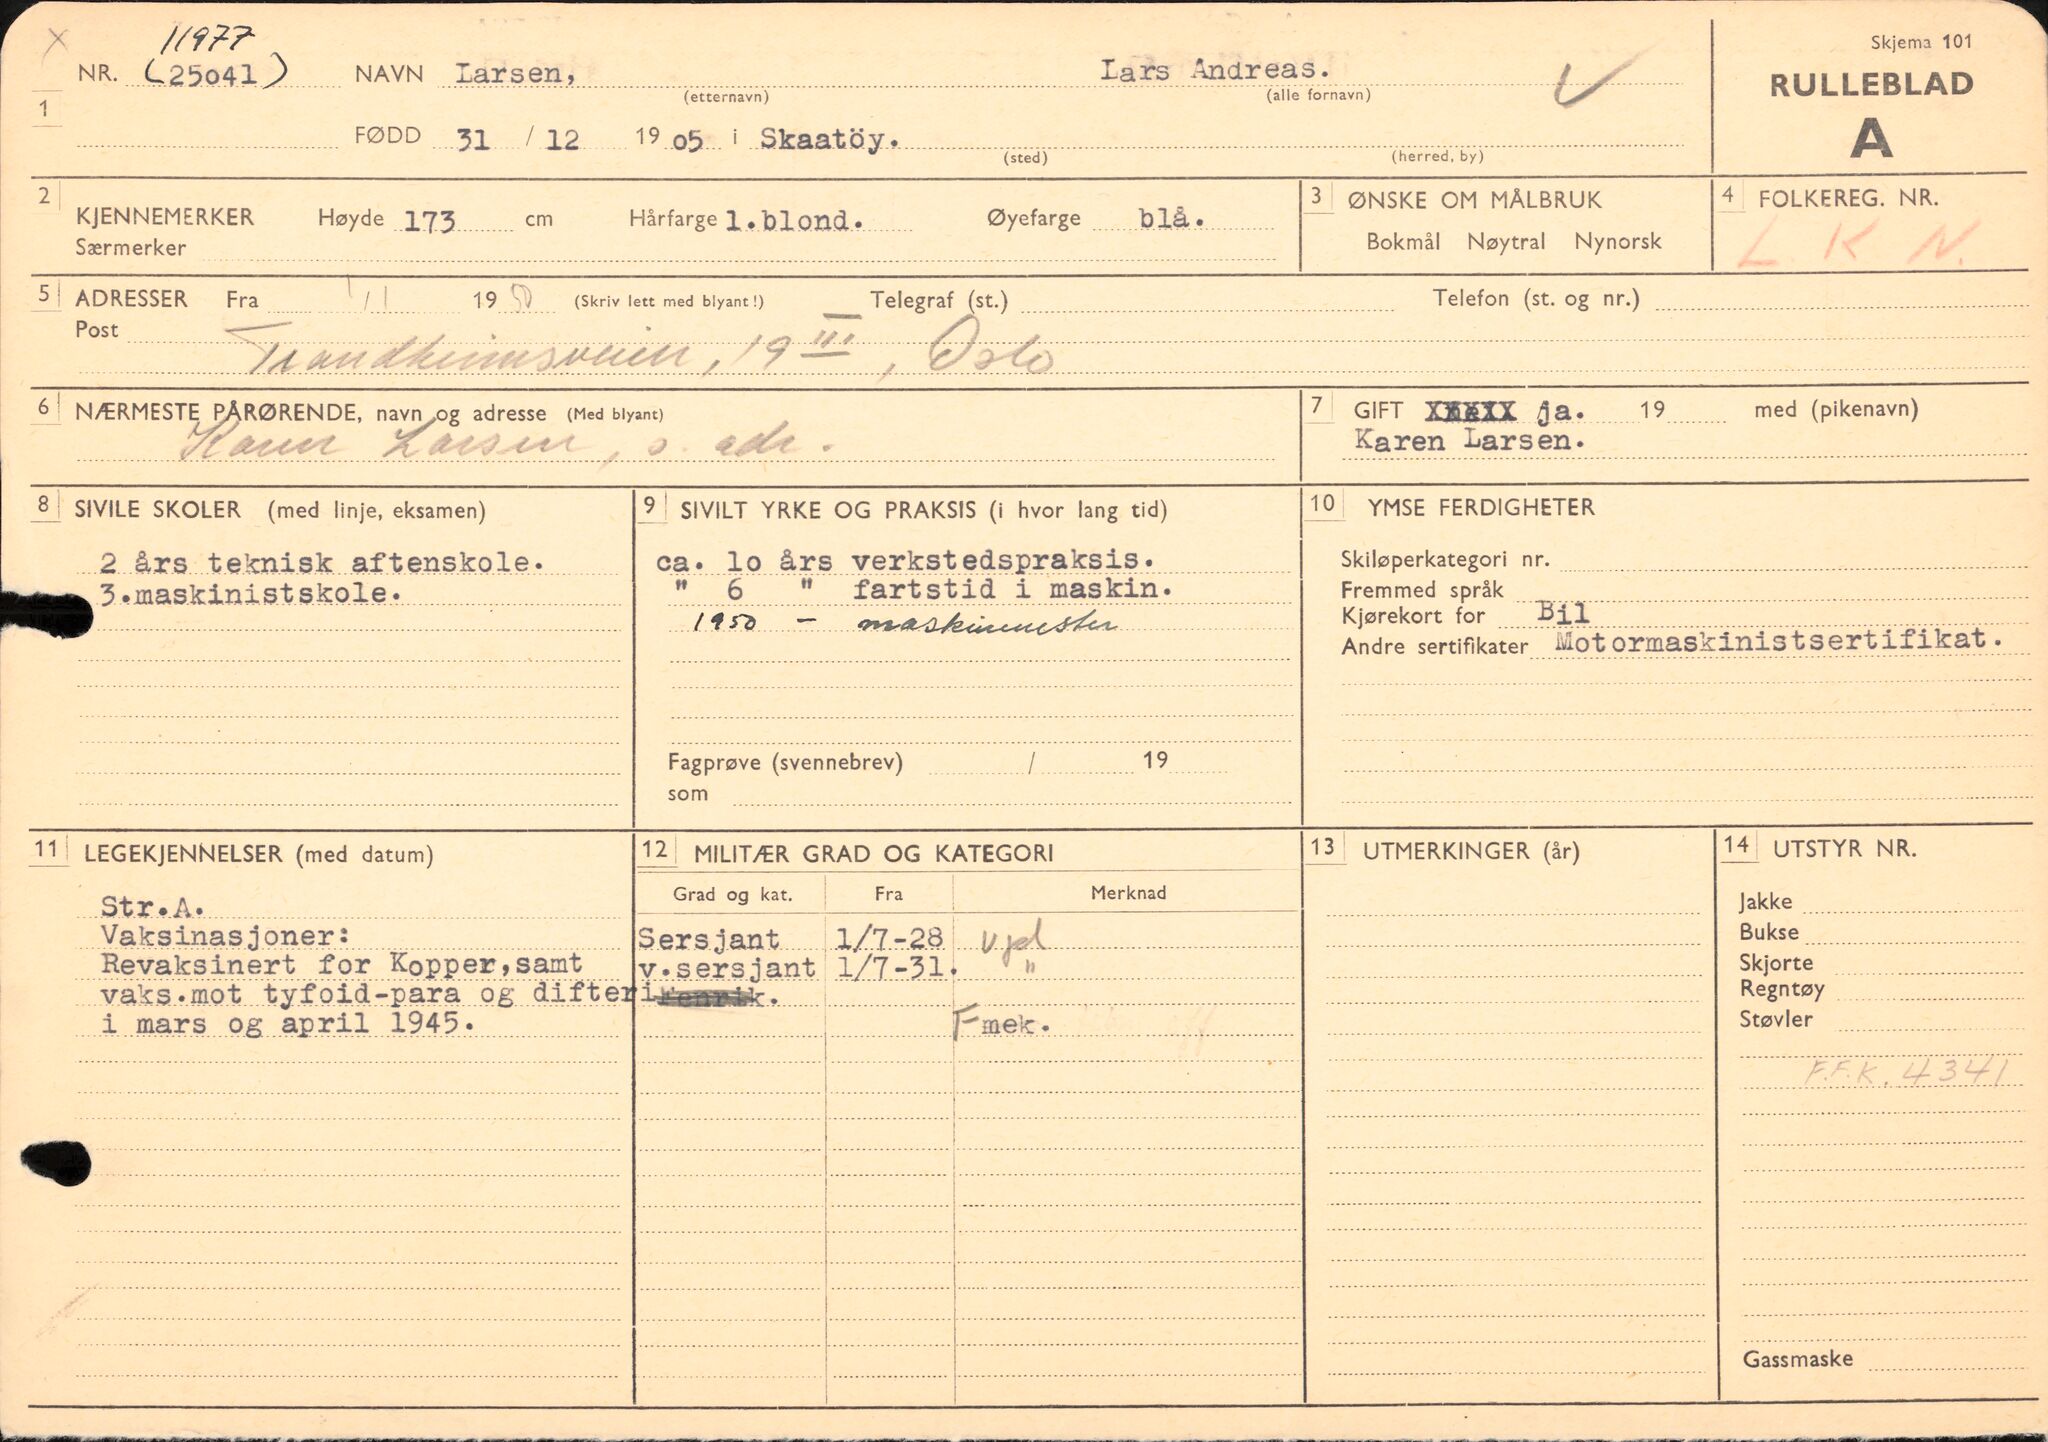 Skjema 101
RULLEBLAD
A
11977
NR. (25041) NAVN Larsen, Lars Andreas.
(etternavn) (alle fornavn)
1
FØDD 31 / 12 1905 i Skaatöy.
(sted) (herred, by)
2 KJENNEMERKER Høyde 173 cm Hårfarge l.blond. Øyefarge blå.
Særmerker
3 ØNSKE OM MÅLBRUK
Bokmål Nøytral Nynorsk
4 FOLKEREG. NR.
L K N.
5 ADRESSER Fra 1/1 1950 (Skriv lett med blyant!) Telegraf (st.) Telefon (st. og nr.)
Post
Trondheimsveien, 19 III, Oslo
6 NÆRMESTE PÅRØRENDE, navn og adresse (Med blyant)
Karen Larsen, s. adr.
7 GIFT ja. 19 med (pikenavn)
Karen Larsen.
8 SIVILE SKOLER (med linje, eksamen)
2 års teknisk aftenskole.
3.maskinistskole.
9 SIVILT YRKE OG PRAKSIS (i hvor lang tid)
ca. lo års verkstedspraksis.
" 6 " fartstid i maskin.
1950 - maskinmester
Fagprøve (svennebrev) / 19
som
10 YMSE FERDIGHETER
Skiløperkategori nr.
Fremmed språk
Kjørekort for Bil
Andre sertifikater Motormaskinistsertifikat.
11 LEGEKJENNELSER (med datum)
Str.A.
Vaksinasjoner:
Revaksinert for Kopper,samt
vaks.mot tyfoid-para og difteri
i mars og april 1945.
12 MILITÆR GRAD OG KATEGORI
Grad og kat. Fra Merknad
Sersjant 1/7-28 Vpl
v.sersjant 1/7-31. "
Fenrik.
F mek.
13 UTMERKINGER (år)
14 UTSTYR NR.
Jakke
Bukse
Skjorte
Regntøy
Støvler
F.F.K. 4341
Gassmaske